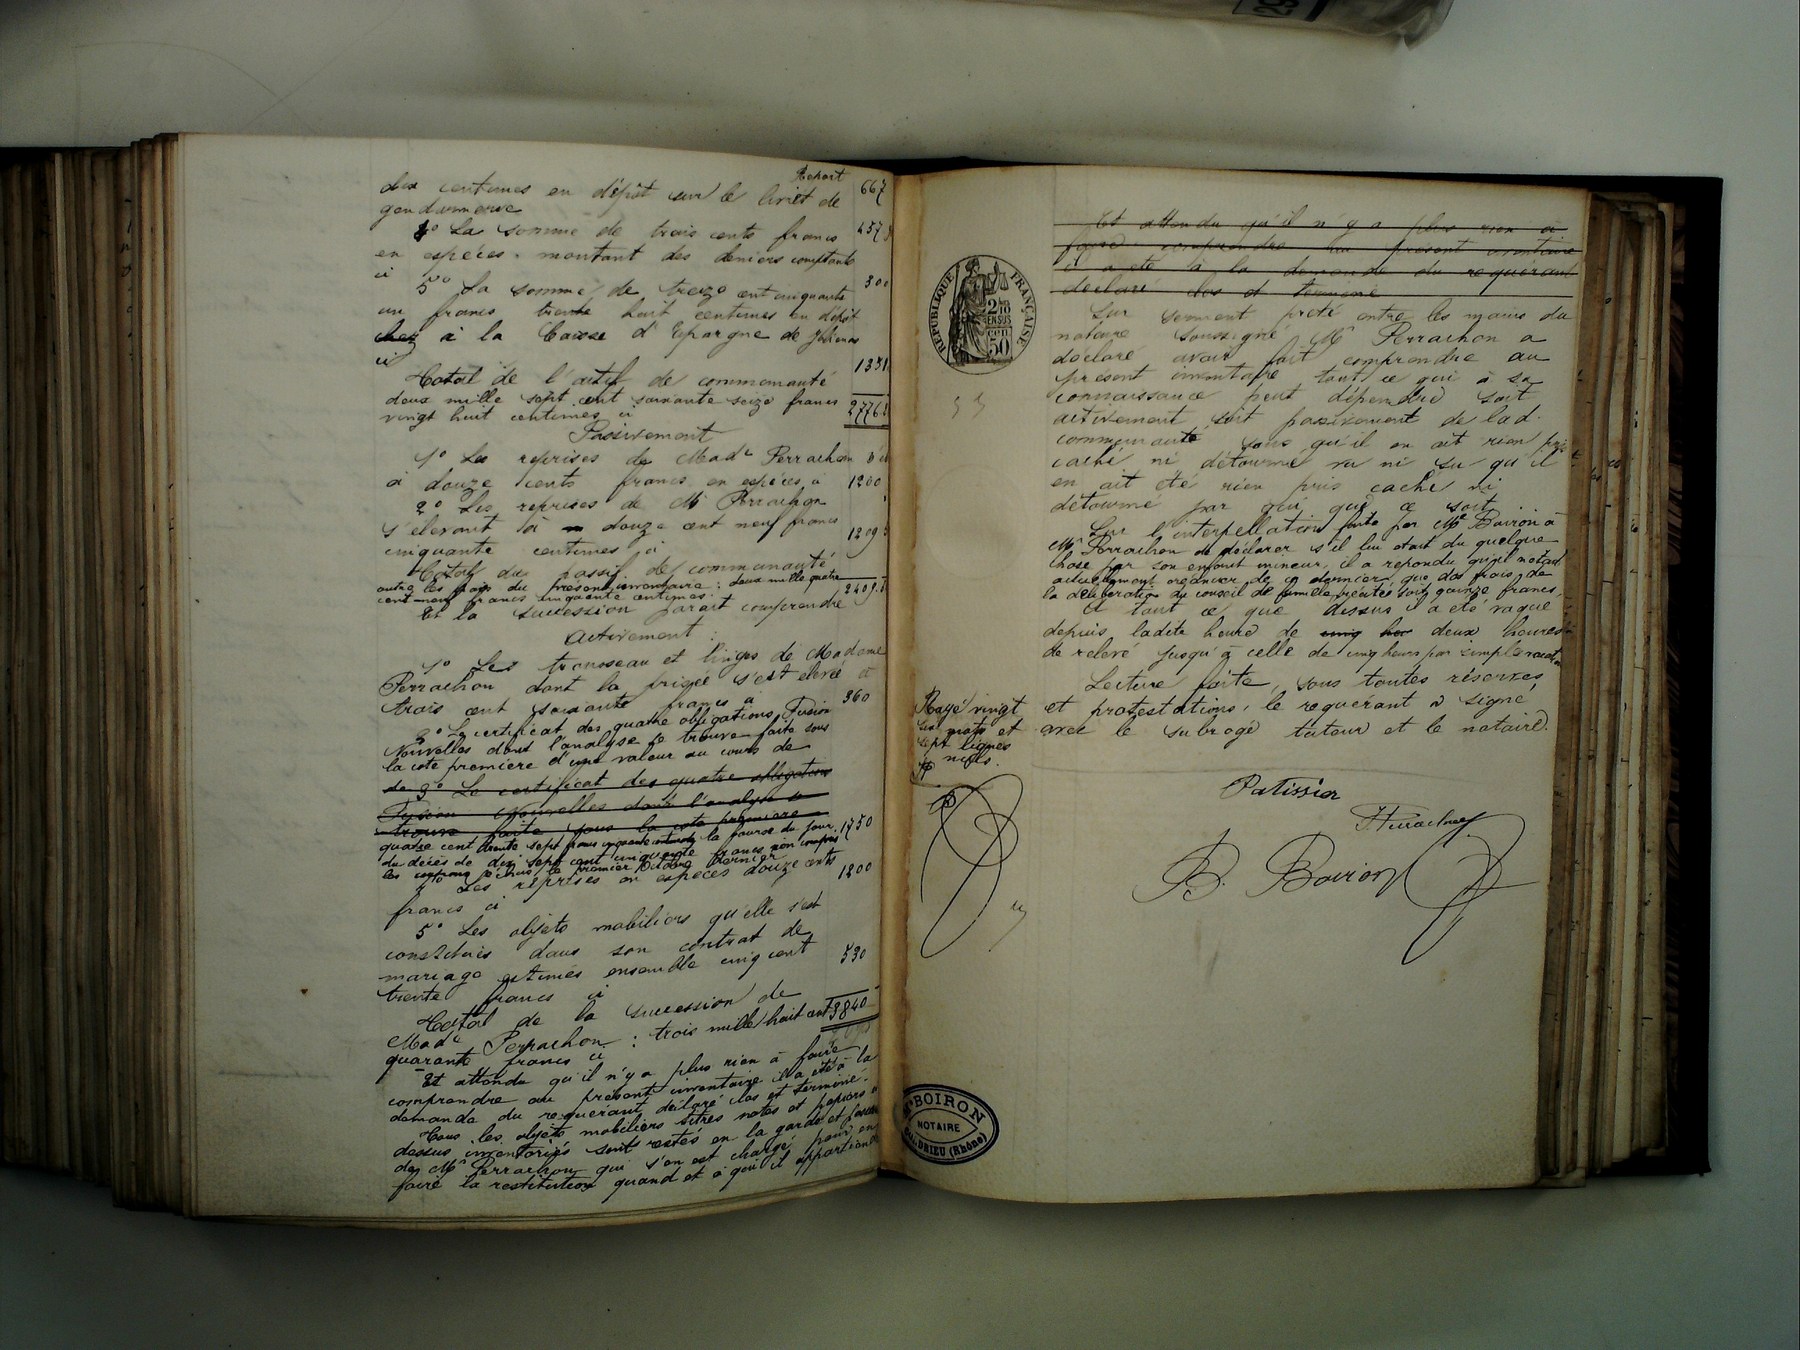 Report 667
dix centimes en dépôt sur le livret de
gendarmerie 457
4º La somme de trois cents francs
en espèces montant des deniers comptants
ci 300
5º La somme de treize cent cinquante
un francs trente huit centimes en dépôt
chez à la Caisse d'Epargne de
ci 1351
Total de l'actif de communauté
deux mille sept cent soixante seize francs
vingt huit centimes ci 2776
Passivement
1º Les reprises de Made Perrachon
à douze cents francs en espèces ci 1200
2º Les reprises de Mr Perrachon
s'élevant à douze cent neuf francs
cinquante centimes ci 1209
Total du passif de communauté
outre les frais du présent inventaire : deux mille quatre
cent neuf francs cinquante centimes. 2409
Et la succession parait comprendre
Activement :
1º Les trousseau et linges de Madame
Perrachon dont la prisée s'est élevée à
trois cent soixante francs ci 360
3º Le certificat des quatre obligations Fusion
Nouvelles dont l'analyse se trouve faite sous
la cote première d'une valeur au cours de
de 3º Le certificat des quatre obligations
Fusion Nouvelles dont l'analyse se
trouve faite sous la cote première
quatre cent trente sept francs cinquante centimes la bourse du jour 1750
du décès de dix sept cent cinquante francs non compris
les coupons échus le premier Octobre dernier
4º Les reprises en espèces douze cents
francs ci 1200
5º Les objets mobiliers qu'elle s'est
constitués dans son contrat de
mariage estimés ensemble cinq cent
trente francs ci 530
Total de la succession de
Made Perrachon : trois mille huit cent 3840
quarante francs ci
Et attendu qu'il n'y a plus rien à faire
comprendre au présent inventaire il a été à la
demande du requérant déclaré clos et terminé.
Tous les objets mobiliers titres notes et papiers ci
dessus inventoriés sont restés en la garde et
de Mr Perrachon qui s'en est chargé pour en
faire la restitution quand et à qui il appartiendra
RÉPUBLIQUE FRANÇAISE
2/10 EN SUS
50
Et attendu qu'il n'y a plus rien à
faire comprendre au présent inventaire
il a été à la demande du requérant
déclaré clos et terminé
Sur serment prêté entre les mains du
notaire soussigné Mr Perrachon a
déclaré avoir fait comprendre au
présent inventaire tout ce qui à sa
connaissance peut dépendre soit
activement soit passivement de lad.
communauté, sans qu'il en ait rien pris
caché ni détourné vu ni su qu'il
en ait été rien pris caché ni
détourné par qui que ce soit
Sur l'interpellation faite par Me Boiron à
Mr Perrachon de déclarer s'il lui était du quelque
chose par son enfant mineur, il a repondu qu'il n'était
actuellement créancier de ce dernier, que des frais de
la délibération du conseil de famille précités soit quinze francs.
A tout ce que dessus il a été vaqué
depuis ladite heure de cinq heu deux heures
de relevé jusqu'à celle de cinq heures par simple vacation
Lecture faite, sous toutes réserves
et protestations, le requérant a signé
avec le subrogé tuteur et le notaire.
Rayé vingt
six mots et
sept lignes
nuls.
Patissier
B. Boiron
Me BOIRON
NOTAIRE
(Rhône)